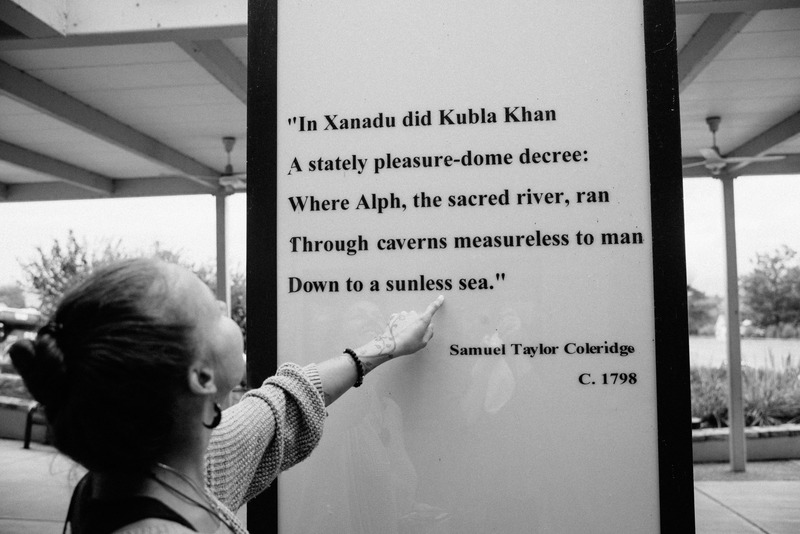 "In Xanadu did Kubla Khan
A stately pleasure-dome decree:
Where Alph, the sacred river, ran
Through caverns measureless to man
Down to a sunless sea."
Samuel Taylor Coleridge
C. 1798